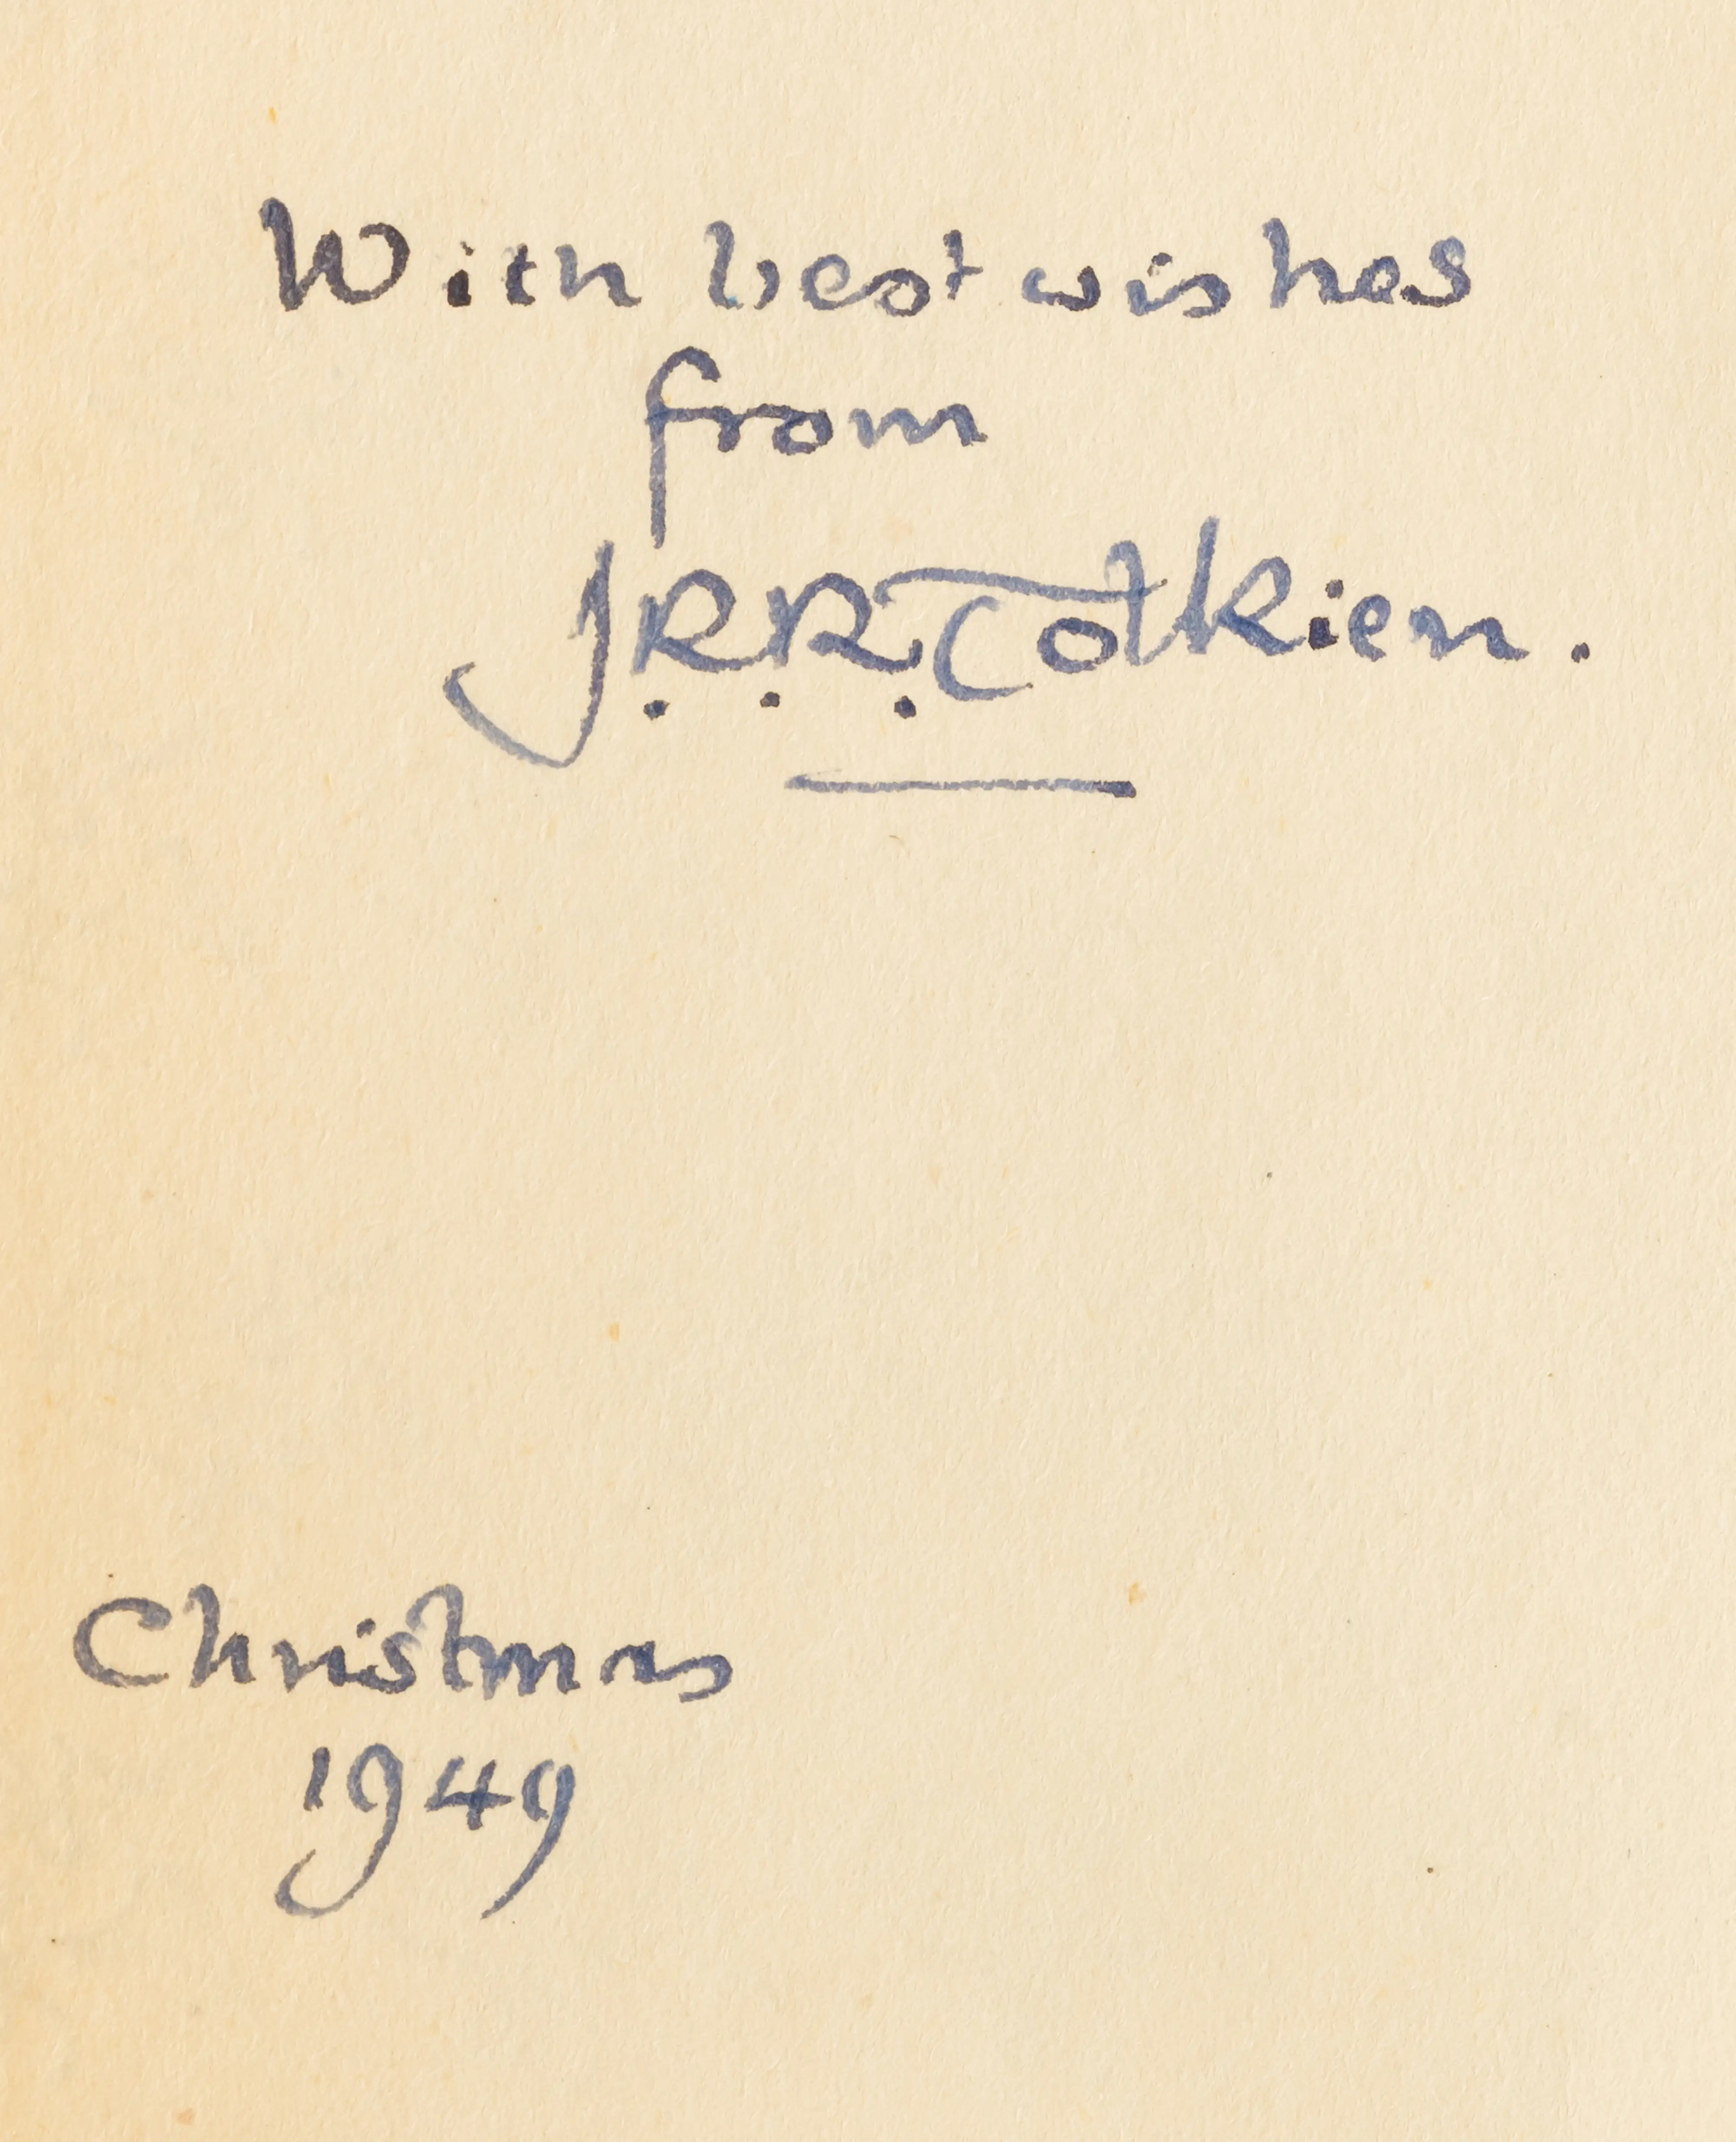 With best wishes
from
J.R.R. Tolkien.
Christmas
1949